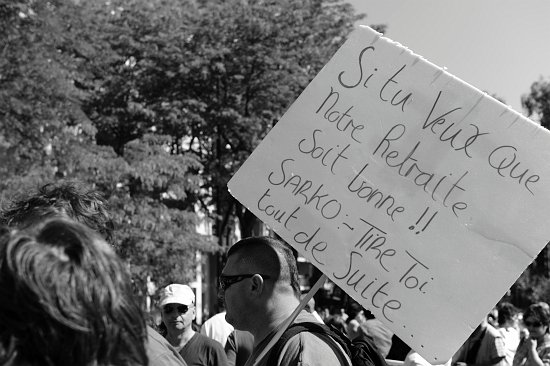 Si tu Veux Que
Notre Retraite
Soit bonne !!
SARKO :- TIRE Toi
tout de Suite...